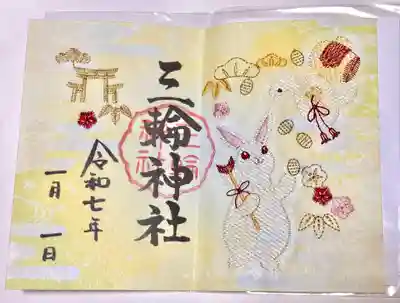 三輪神社
令和七年
一月一日